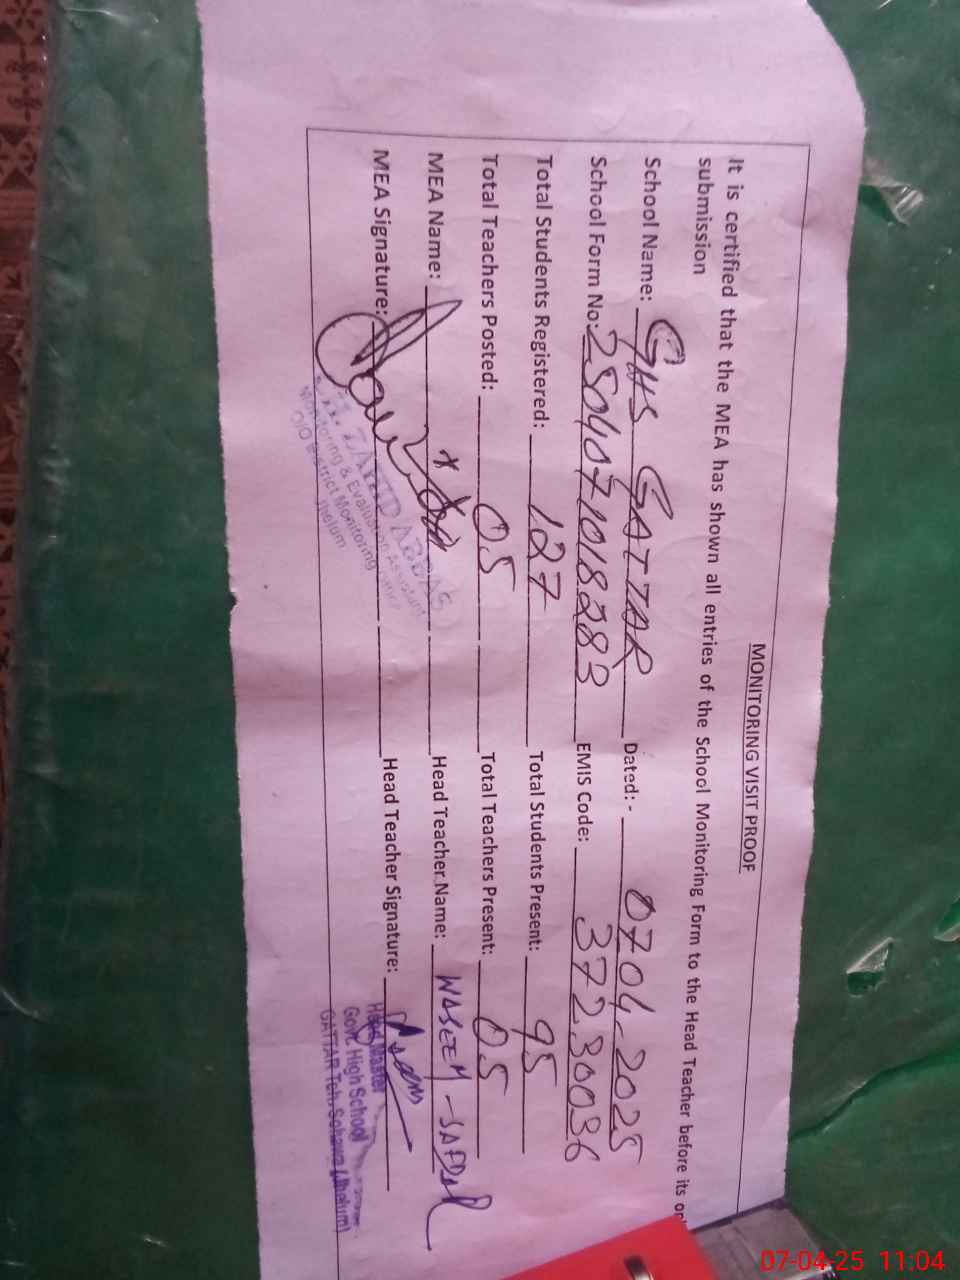 MONITORING VISIT PROOF
It is certified that the MEA has shown all entries of the School Monitoring Form to the Head Teacher before its
submission
School Name: GHS GATTAR Dated:- 07-04-2025
School Form No: 2504071018283 EMIS Code: 37230036
Total Students Registered: 127 Total Students Present: 95
Total Teachers Posted: 05 Total Teachers Present: 05
MEA Name: Head Teacher Name: WASEEM - SAFDAR
MEA Signature: Head Teacher Signature:
ZAHID ABBAS
Monitoring & Evaluation Assistant
O/O District Monitoring
Jhelum
Head Master
Govt. High School
GATTAR Teh. Sohawa (Jhelum)
07-04-25 11:04